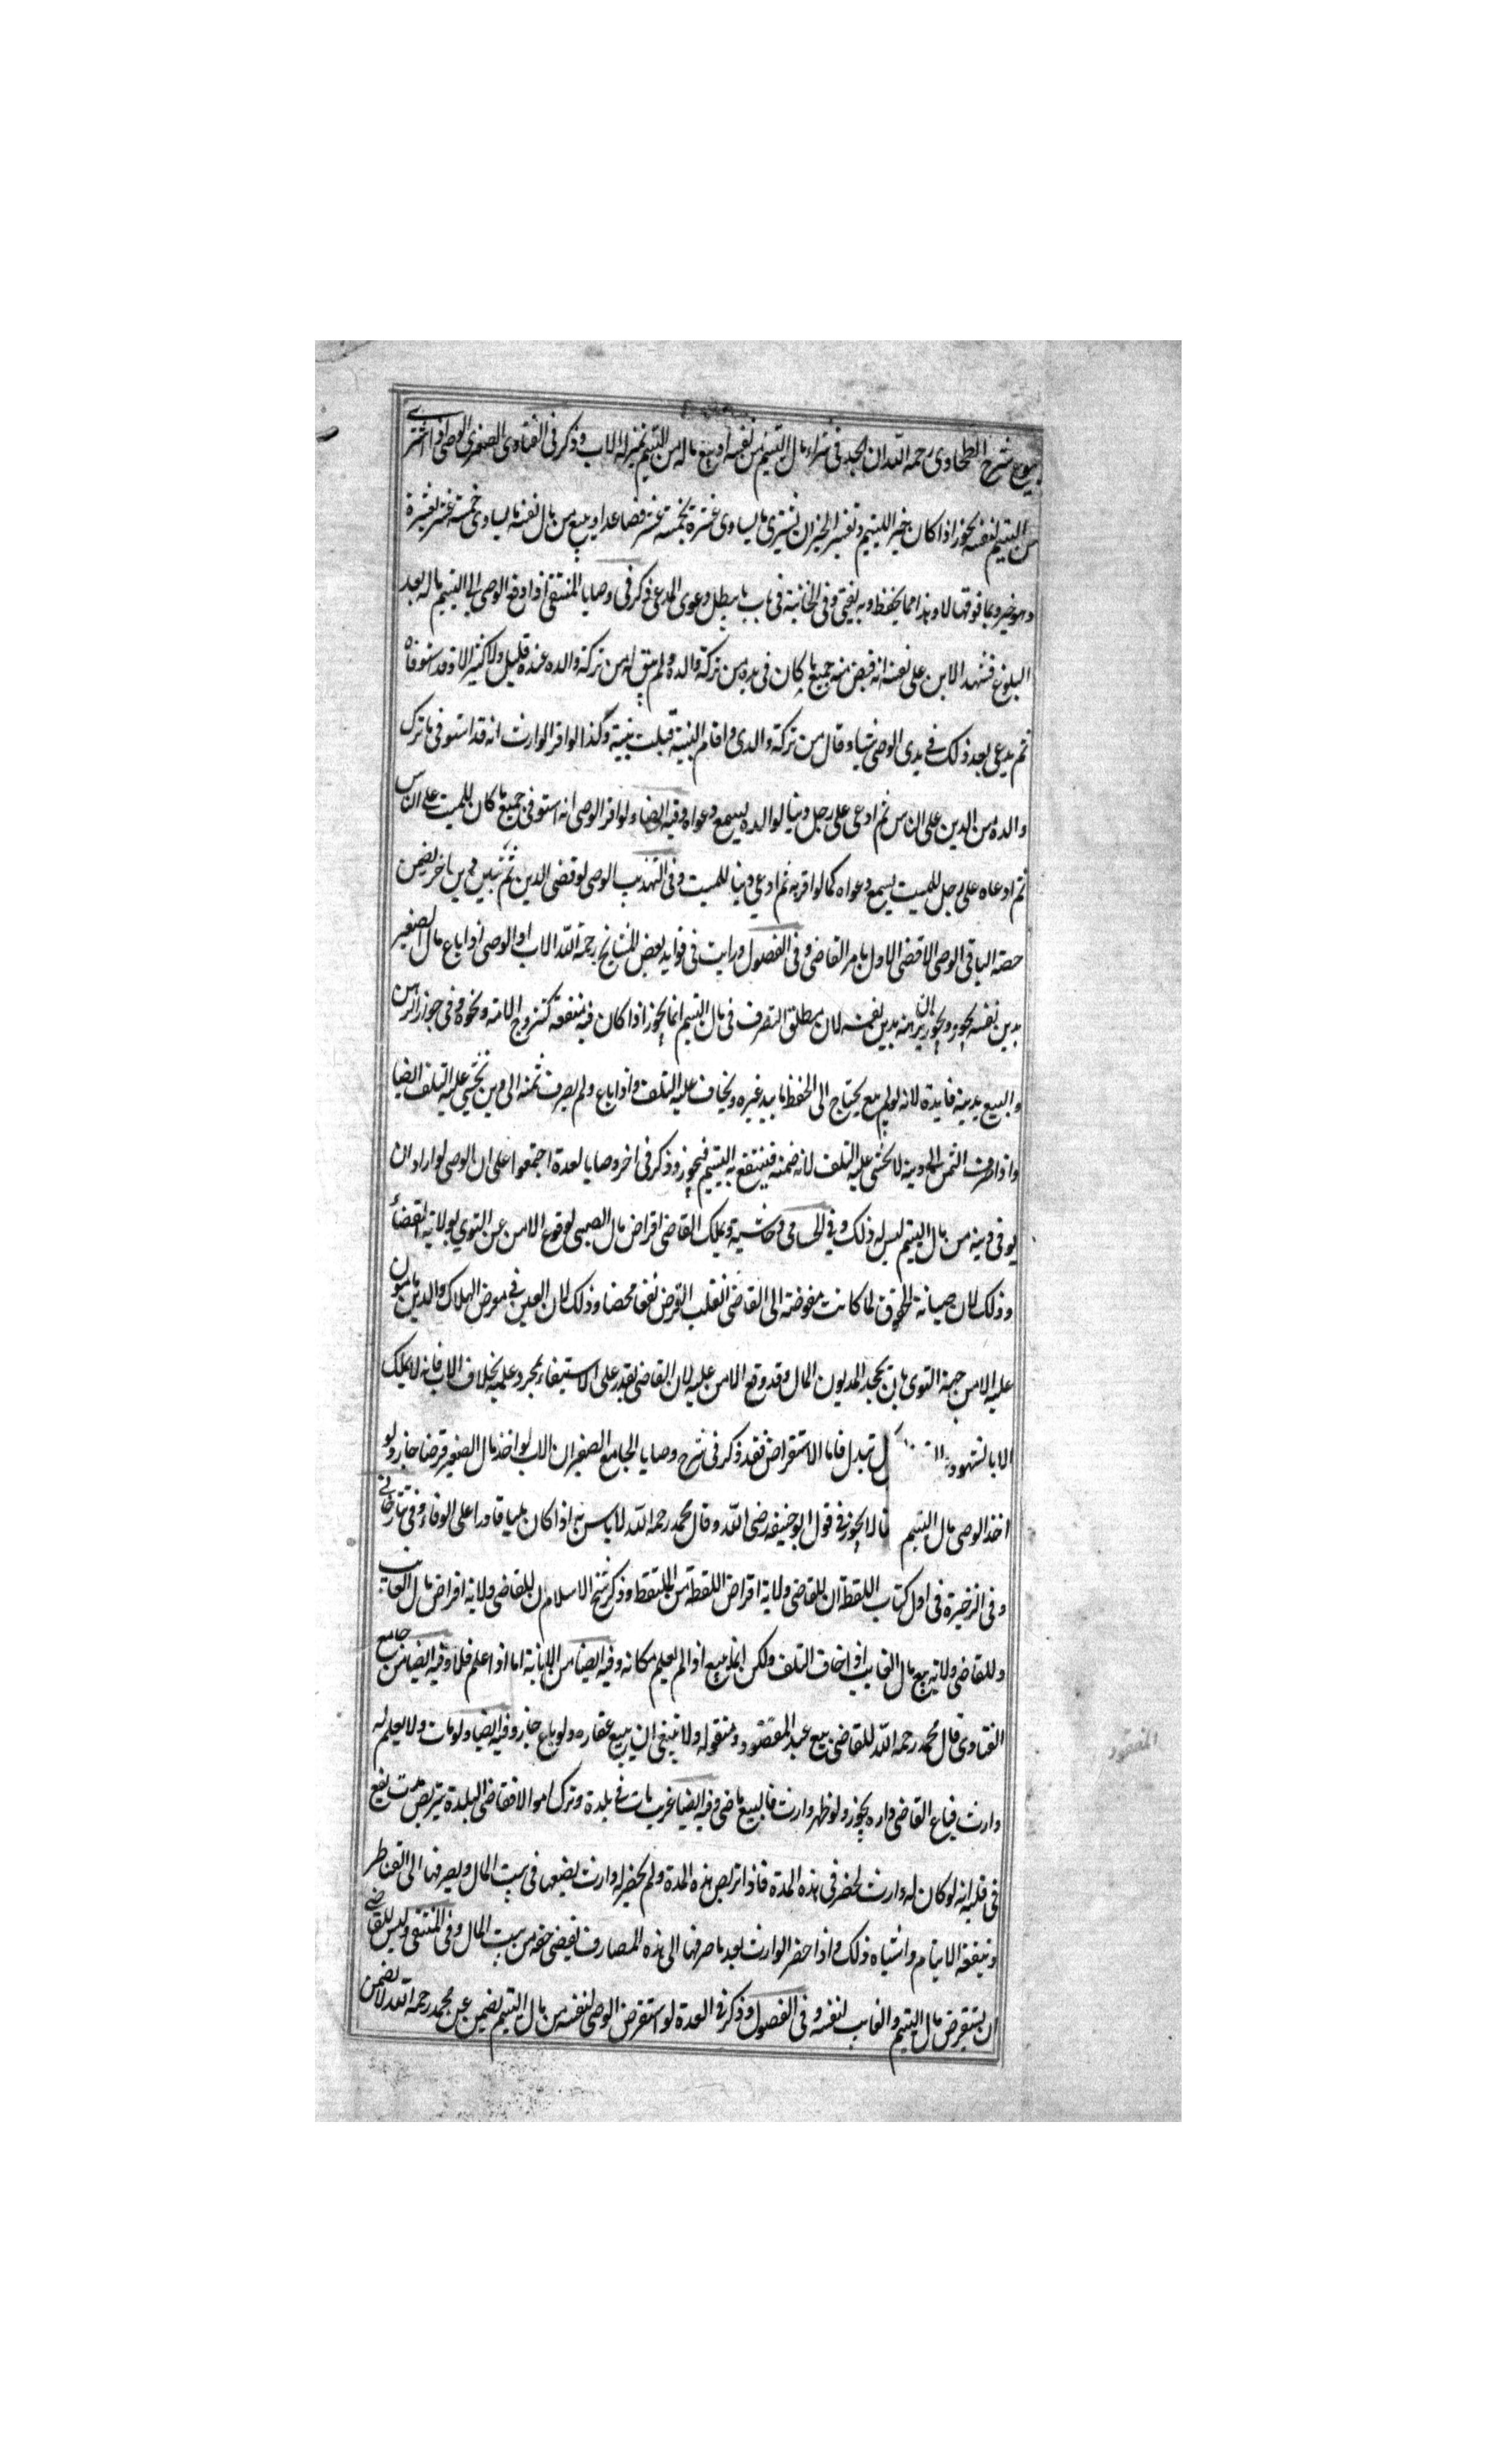 بيوع شرح الطحاوى رحمه الله ان الجد فى شراء مال اليتيم من نفسه او بيع ماله من اليتيم بمنزلة الاب وذكر فى الفتاوى الصغرى الوصى اذا اشترى
من اليتيم لنفسه يجوز اذا كان خير اليتيم وتفسير الخير ان يشترى ما يساوى عشرة بخمسة عشر فصاعدا ويبيع من مال نفسه ما يساوى خمسة عشر بعشرة
وهو خير وبما فوقها لا وهذا مما يحفظ وبه يفتى وفى الخانية فى باب ما يبطل دعوى المدعى ذكر فى وصايا المنتقى اذا دفع الوصى الى اليتيم ماله بعد
البلوغ فشهد الابن على نفسه انه قبض منه جميع ما كان فى يده من تركة والده ولم يبق له من تركة والده عنده قليل ولا كثير الا وقد استوفاه
ثم يدعى بعد ذلك فى يدى الوصى شيا وقال من تركة والدى واقام البينة قبلت بينته وكذا لو اقر الوارث انه قد استوفى ما ترك
والده من الدين على الناس ثم ادعى على رجل دينا لوالده يسمع دعواه وفيه ايضا ولو اقر الوصى انه استوفى جميع ما كان للميت على الناس
ثم ادعاه على رجل للميت يسمع دعواه كما لو اقر به ثم ادعى دينا للميت وفى التهذيب الوصى لو قضى الدين ثم تبين دين اخر يضمن
حصة الباقى الوصى الا قضى الاول بامر القاضى وفى الفصول ورايت فى فوايد بعض المشايخ رحمه الله الاب او الوصى اذا باع مال الصغير
بدين نفسه يجوز ويجوز ان يرهنه بدين نفسه لان مطلق التصرف فى مال اليتيم انما يجوز اذا كان فيه منفعة كتزوج الامة ونحوه وفى جواز الرهن
والبيع بدينه فايدة لانه لو لم يبع يحتاج الى الحفظ ما بيد غيره ويخاف عليه التلف واذا باع ولم يصرف ثمنه الى دين يخشى عليه التلف ايضا
واذا صرف الثمن الى دينه لا يخشى عليه التلف لانه ضمنه فينتفع به اليتيم فيجوز وذكر فى اخر وصايا العدة اجتمعوا على ان الوصى لو اراد ان
يوفى دينه من مال اليتيم ليس له ذلك وفى الحسامى وحاشيته ويملك القاضى اقراض مال الصبى لوقوع الامن عن التوى بولاية القضاء
وذلك لان صيانة الحقوق لما كانت مفوضة الى القاضى انقلب القرض نفعا محضا وذلك لان العين فى معرض الهلاك والدين مامون
عليه الا من جهة التوى بان يجحد المديون المال وقد وقع الامن عليه لان القاضى يقدر على الاستيفاء بمجرد علمه بخلاف الاب فانه لا يملك
الا بالشهود ل تبدل فاما الاستقراض فقد ذكر فى شرح وصايا الجامع الصغير ان الاب لو اخذ مال الصغير قرضا جاز ولو
اخذ الوصى مال اليتيم لا يجوز فى قول ابو حنيفه رضى الله وقال محمد رحمه الله لا باس به اذا كان مليا قادرا على الوفاء وفى تتارخانى
وفى الذخيرة فى اول كتاب اللقطة ان للقاضى ولاية اقراض اللقطة من الملتقط وذكر شيخ الاسلام ان للقاضى ولاية اقراض مال الغايب
وللقاضى ولاية بيع مال الغايب اذا خاف التلف ولكن انما يبيع اذا لم يعلم مكانه وفيه ايضا من الابانة اما اذا علم فلا وفيه ايضا من جامع
الفتاوى قال محمد رحمه الله للقاضى بيع عبد المفقود ومنقوله ولا ينبغى ان يبيع عقاره ولو باع جاز وفيه ايضا ولو مات ولا يعلم له
وارث فباع القاضى داره يجوز ولو ظهر وارث فالبيع ماضى وفيه ايضا غريب مات فى بلدة وترك اموالا فقاضى البلدة يتربص مدت يقع
فى قلبه انه لو كان له وارث لحضر فى هذه المدة فاذا تربص هذه المدة ولم يحضر له وارث يضعها فى بيت المال ويصرفها الى القناطر
ونفقة الايتام واشباه ذلك واذا حضر الوارث بعد ما صرفها الى هذه المصارف يقضى حقه من بيت المال وفى المنتقى وليس للقاضى
ان يستقرض مال اليتيم والغايب لنفسه وفى الفصول وذكر فى العدة لو استقرض الوصى لنفسه من مال اليتيم يضمن عن محمد رحمه الله لا يضمن
المفقود